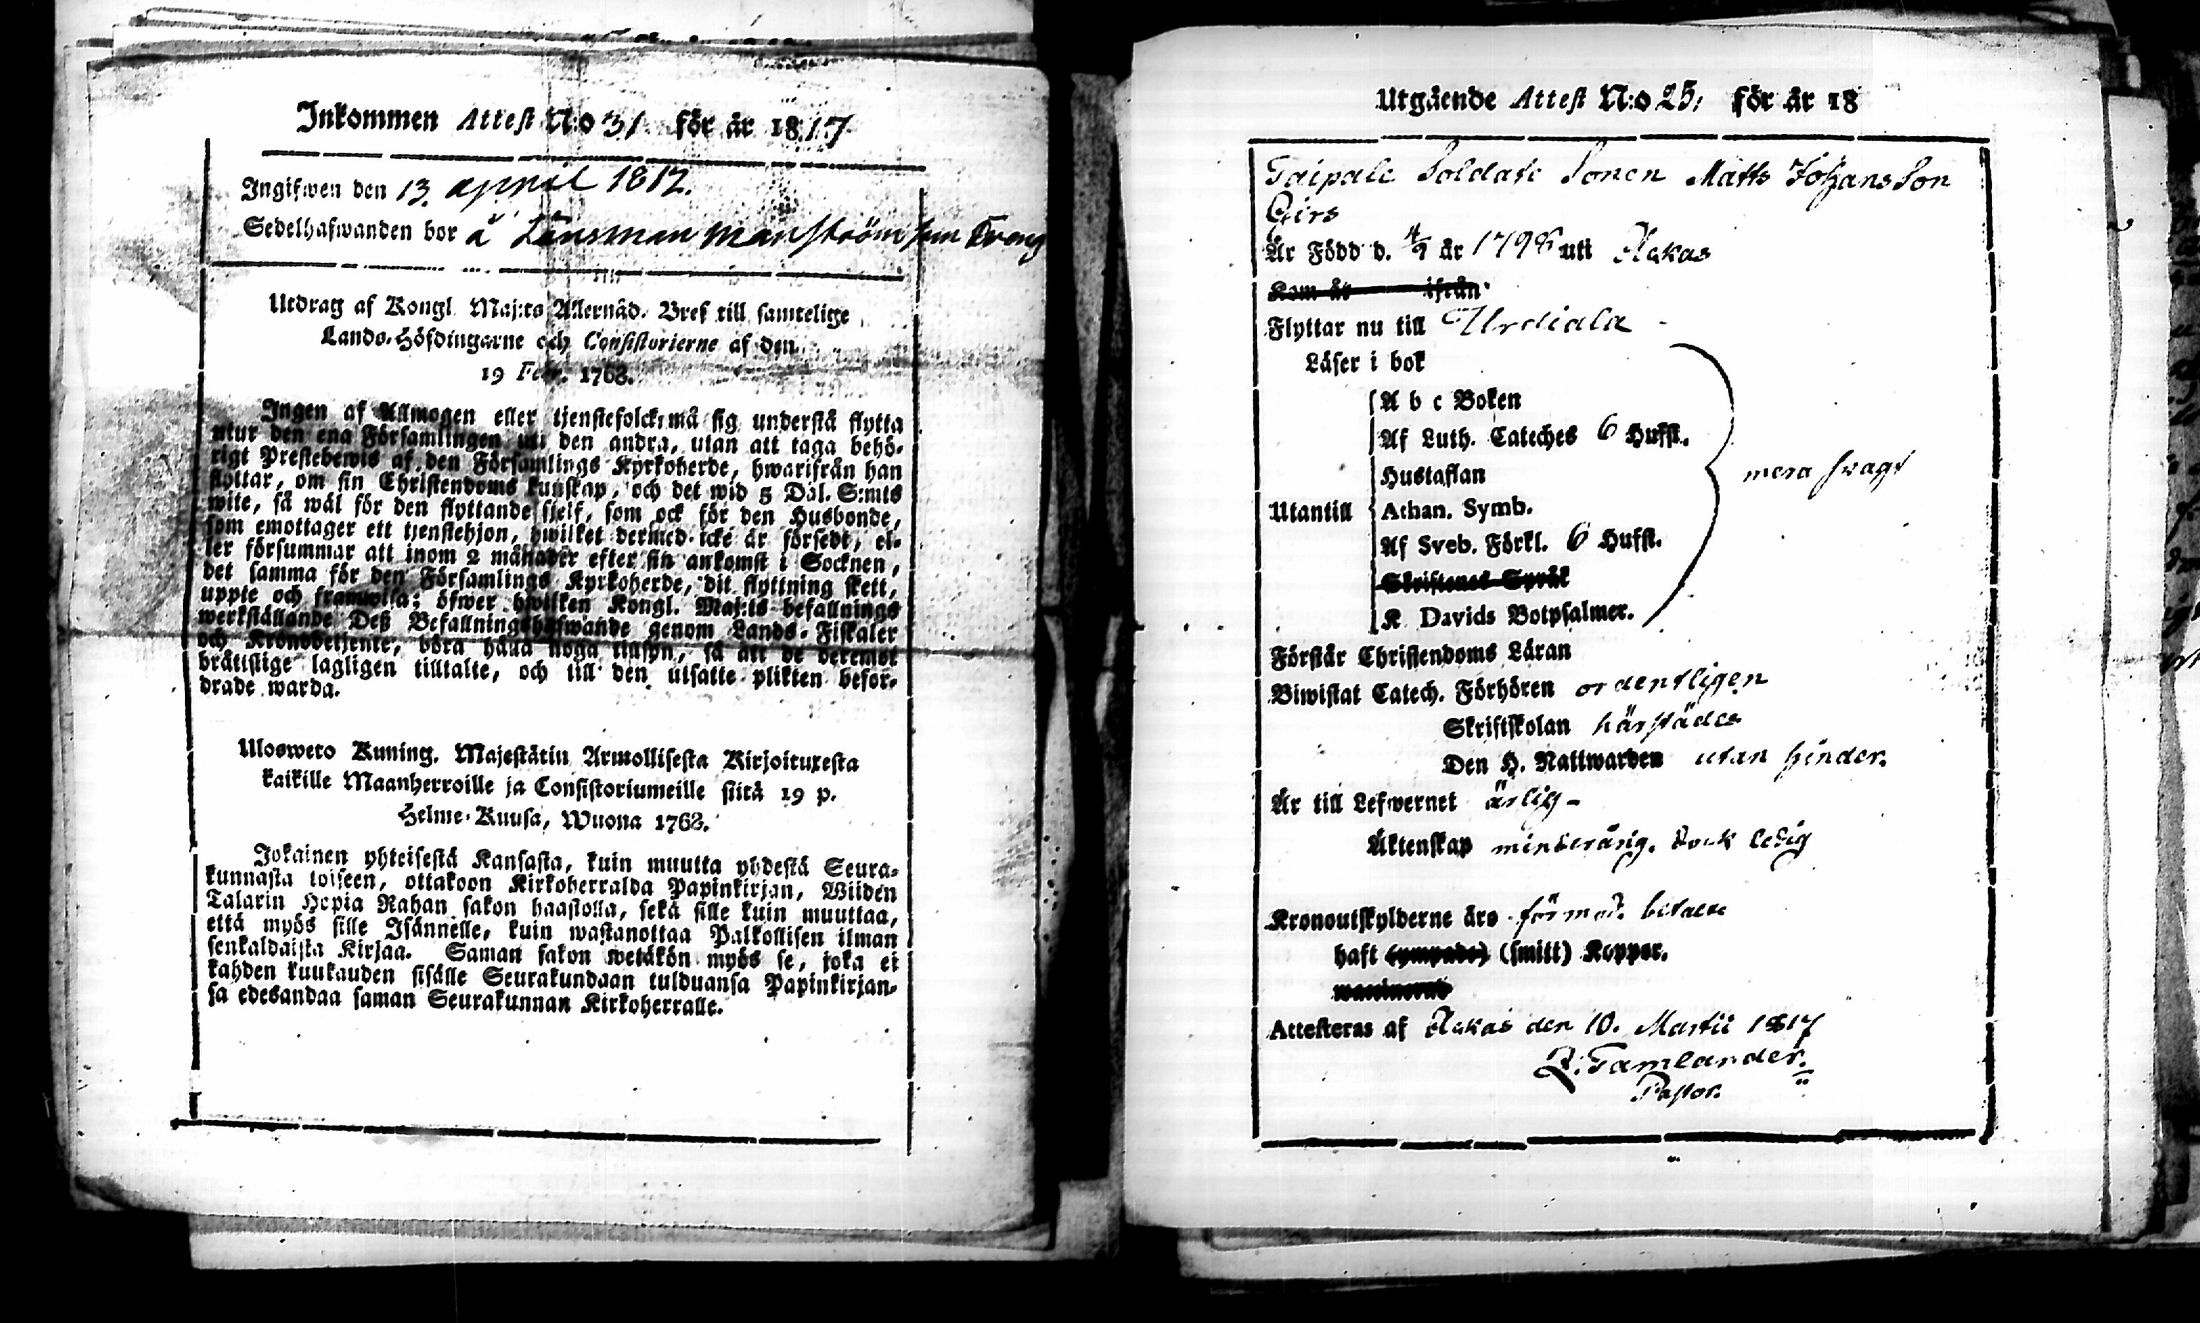 Inkommen Attest N:o 31 för år 1817
Ingifwen den 13. april 1817.
Sedelhafwanden bor å Länsman Manström som Dreng
Utdrag af Kongl. Maj:ts Allernåd. Bref till samtelige
Lands-Höfdingarne och Consistorierne af den
19 Febr. 1768.
Ingen af Allmogen eller tjenstefolck, må sig understå flytta
utur den ena Församlingen uti den andra, utan att taga behö-
rigt Prestebewis af den Församlings Kyrkoherde, hwarifrån han
flyttar, om sin Christendoms kunskap, och det wid 5 Dal. S:mts
wite, så wäl för den flyttande sjelf, som ock för den Husbonde,
som emottager ett tjenstehjon, hwilket dermed icke är försedt, el-
ler försummar att inom 2 månader efter sin ankomst i Socknen,
det samma för den Församlings Kyrkoherde, dit flyttning skett,
uppte och framwisa; öfwer hwilken Kongl. Maj:ts befallnings
werkställande Deß Befallningshafwande genom Lands-Fiskaler
och Kronobetjente, böra hålla noga tillsyn, så att de deremot
bråttslige lagligen tilltalte, och till den utsatte plikten befor-
drade warda.
Ulosweto Kuning. Majestätin Armollisesta Kirjoituxesta
kaikille Maanherroille ja Consistoriumeille siitä 19 p.
Helme-Kuusa, Wuona 1768.
Jokainen yhteisestä Kansasta, kuin muutta yhdestä Seura-
kunnasta toiseen, ottakoon Kirkoherralda Papinkirjan, Wiiden
Talarin Hopia Rahan sakon haastolla, sekä sille kuin muuttaa,
että myös sille Isännelle, kuin wastanottaa Palkollisen ilman
senkaldaista Kirjaa. Saman sakon wetäkön myös se, joka ei
kahden kuukauden sisälle Seurakundaan tulduansa Papinkirjan-
sa edesandaa saman Seurakunnan Kirkoherralle.
Utgående Attest N:o 25, för år 18
Taipale Soldate Sonen Matts Johansson
Girs
Är Född d. 4/9 år 1798 uti Ackas
Kom år ifrån
Flyttar nu till Urdiala
Läser i bok
A b c Boken
Af Luth. Cateches 6 Hufst.
Hustaflan
mera swagt
Utantill Athan. Symb.
Af Sveb. Förkl. 6 Hufst.
Skriftenes Språk
K. Davids Botpsalmer.
Förstår Christendoms Läran
Biwistat Catech. Förhören ordentligen
Skriftskolan härstädes
Den H. Nattwarden utan hinder.
Är till Lefwernet ärlig -
Äktenskap minderårig. dock ledig
Kronoutskylderne äro förmod. betalte
haft (ympade) (smitt) Koppor.
waccinerad
Attesteras af Ackas den 10. Martii 1817
Tamlander.
Pastor.